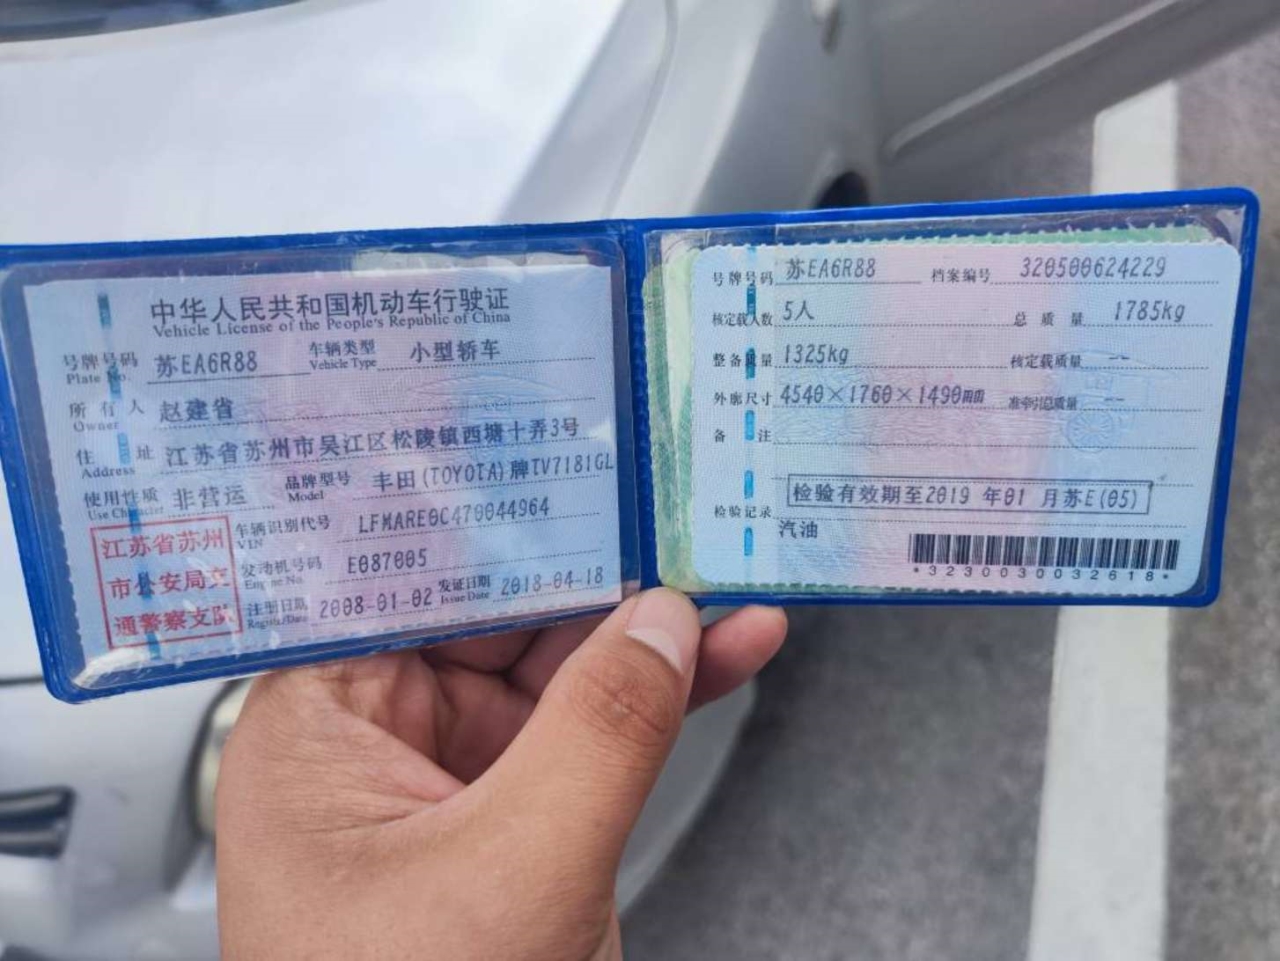 中华人民共和国机动车行驶证
Vehicle License of the People's Republic of China
号牌号码 苏EA6R88 车辆类型 小型轿车
Plate No. Vehicle Type
所有人 赵建省
Owner
住址 江苏省苏州市吴江区松陵镇西塘十弄3号
Address
使用性质 非营运 品牌型号 丰田(TOYOTA)牌TV7181GL
Use Character Model
江苏省苏州
市公安局交
通警察支队
车辆识别代号 LFMARE0C470044964
VIN
发动机号码 E087005
Engine No.
注册日期 2008-01-02 发证日期 2018-04-18
Register Date Issue Date
号牌号码 苏EA6R88 档案编号 320500624229
核定载人数 5人 总质量 1785kg
整备质量 1325kg 核定载质量 --
外廓尺寸 4540×1760×1490mm 准牵引总质量 --
备注
检验记录 检验有效期至2019 年01 月苏E(05)
汽油
*3230030032618*